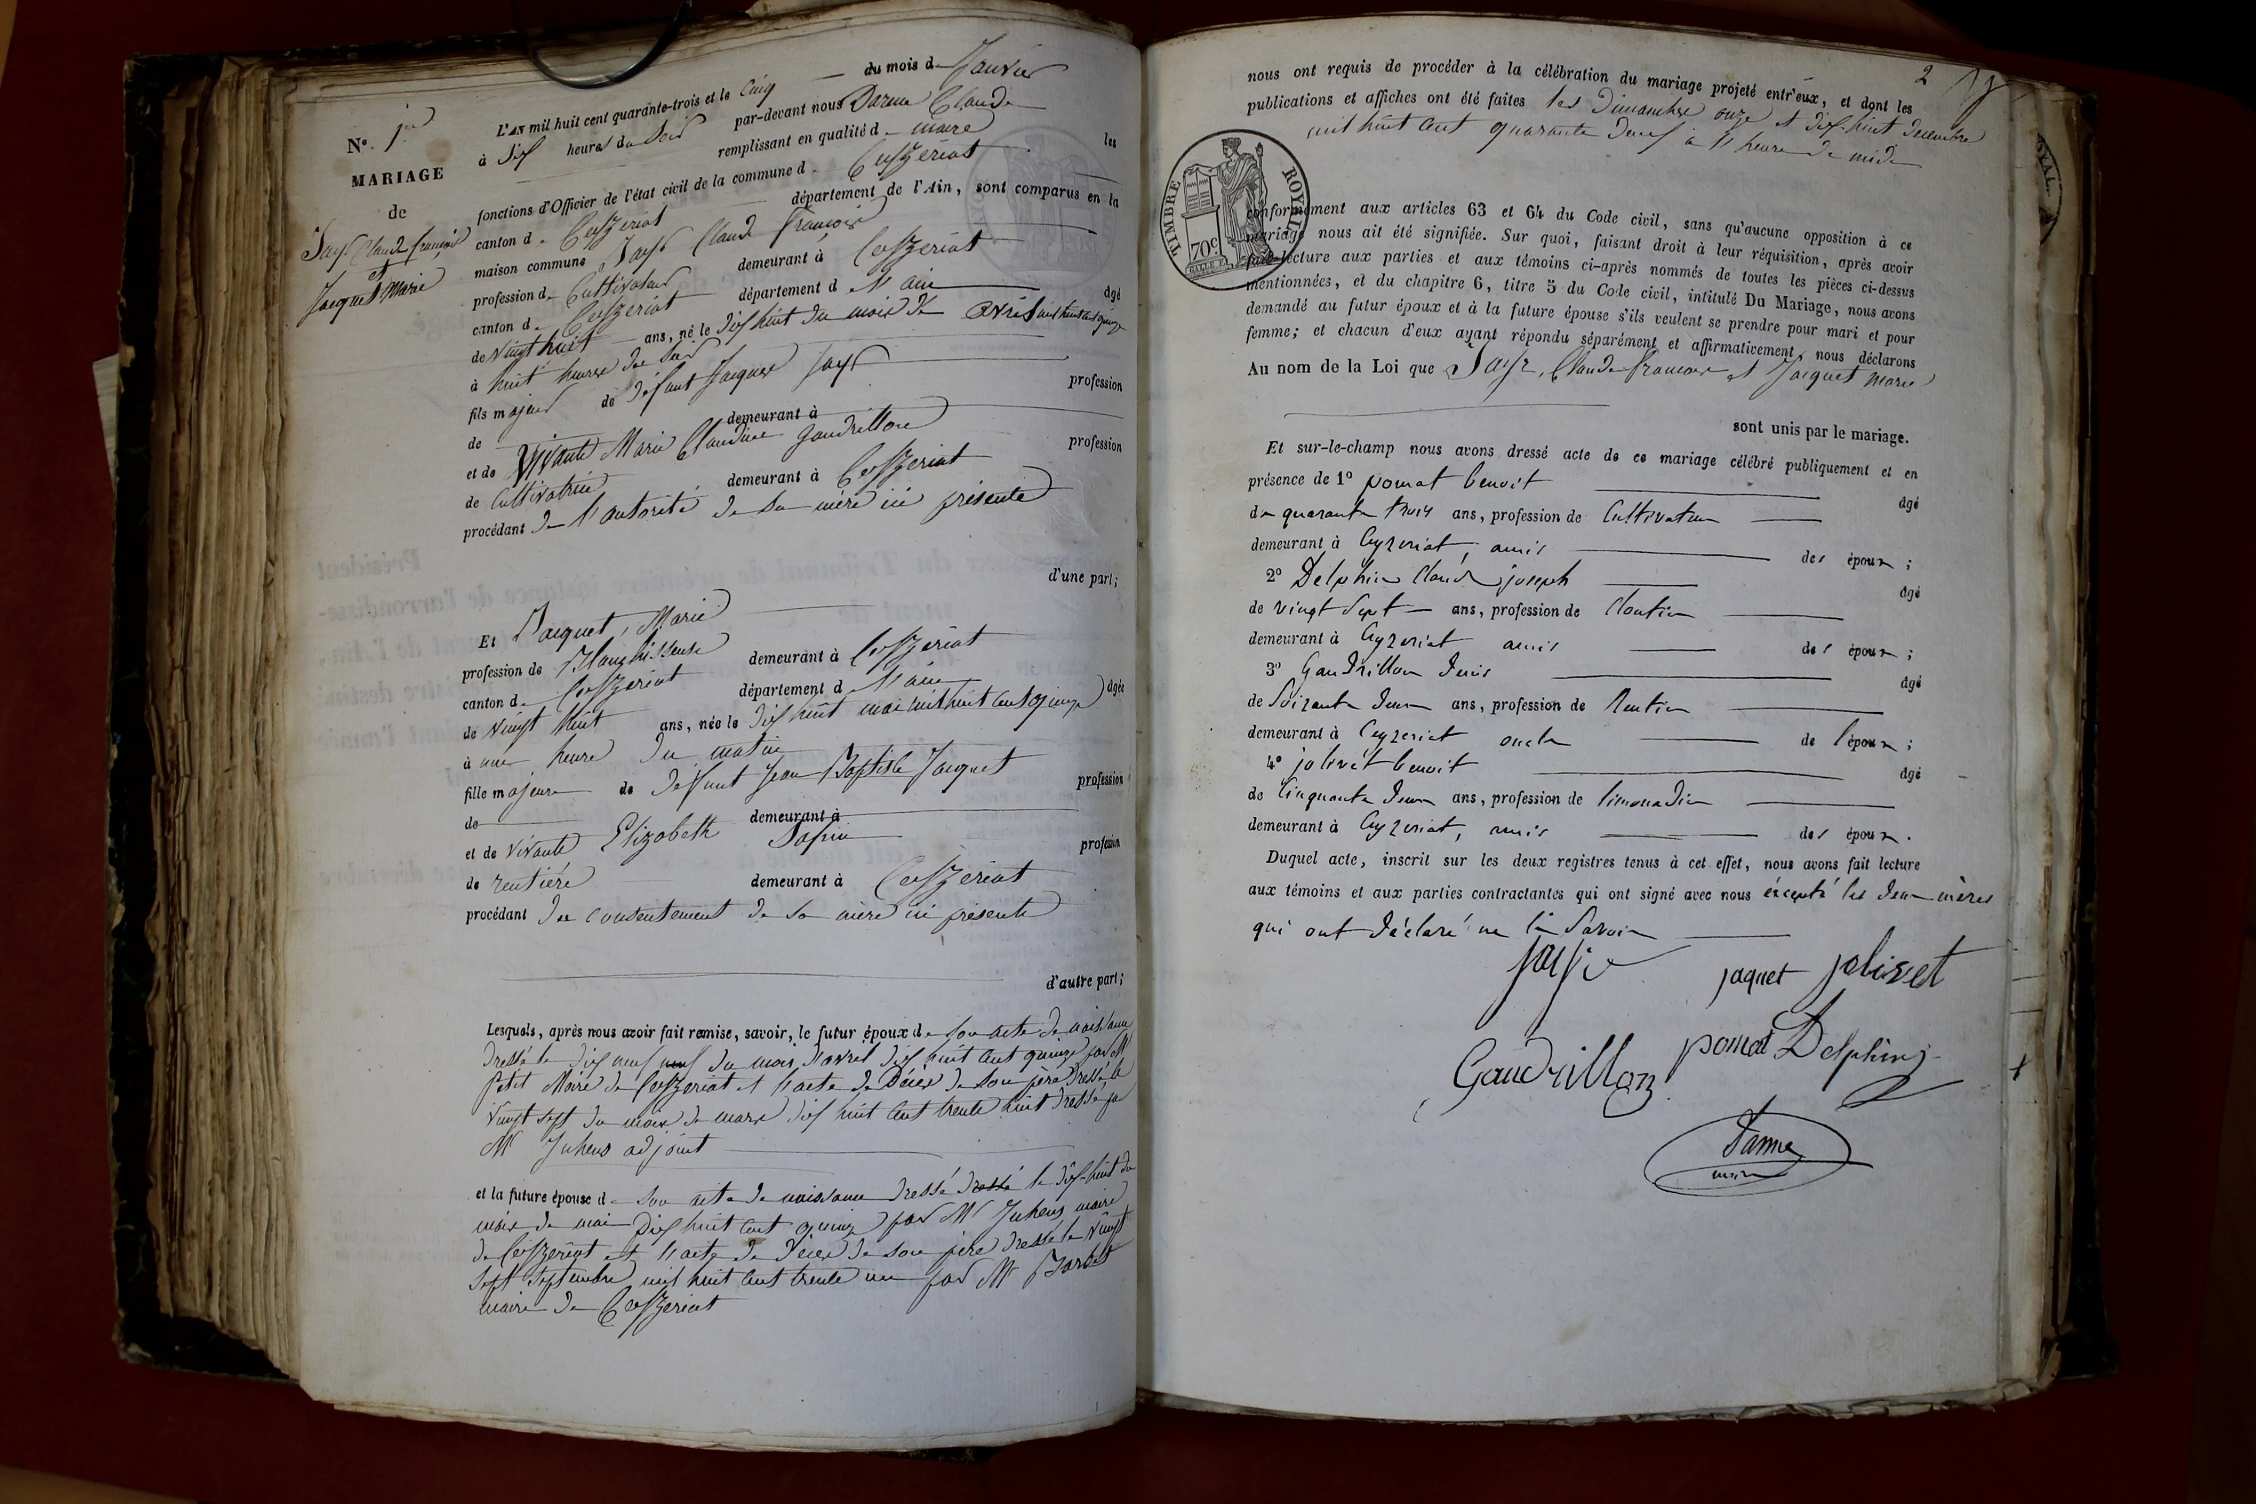 N°. 1er
MARIAGE
de
Saye Claude françois
et
Jacquet Marie
L'AN mil huit cent quarante-trois et le Cinq du mois d Janvier
à Six heures du Soir par-devant nous Darme Claude
remplissant en qualité d maire les
fonctions d'Officier de l'état civil de la commune d Ceyzériat
canton d Ceyzériat département de l'Ain, sont comparus en la
maison commune Claude françois
profession d Cultivateur demeurant à Ceyzériat
canton d Ceyzériat département d l'ain âgé
de vingt huit ans, né le dix huit du mois de avril mil huit cent quinze
à huit heures du Soir
fils majeur de défunt Jacques profession
de demeurant à
et de Vivante Marie Claudine Gaudrillon profession
de Cultivatrice demeurant à Ceyzériat
procédant de l'autorité de Sa mère ici présente
d'une part;
Et Jacquet, Marie
profession de Blanchisseuse demeurant à Ceyzériat
canton d Ceyzériat département d l'ain âgée
de vingt huit ans, née le dix huit mai mil huit cent quinze
à une heure du matin
fille majeure de défunt Jean Baptiste Jacquet profession
de demeurant à
et de vivante Elizabeth profession
de rentière demeurant à Ceyzériat
procédant du consentement de sa mère ici présente
d'autre part;
Lesquels, après nous avoir fait remise, savoir, le futur époux d son acte de naissance
dressé le dix neuf du mois d'avril dix huit cent quinze par Mr
Petit Maire de Ceyzériat et l'acte de Décès de son père dressé le
vingt sept du mois de mars dix huit cent trente huit dressé par
Mr Juhens adjoint
et la future épouse d son acte de naissance dressé dressé le dix-huit du
mois de mai Dix huit cent quinze par Mr Juhens maire
de Ceyzériat et l'acte de Décès de son père dressé le vingt
sept septembre mil huit cent trente un par Mr
maire de Ceyzériat
2
nous ont requis de procéder à la célébration du mariage projeté entr'eux, et dont les
publications et affiches ont été faites les Dimanches onze et dix-huit décembre
mil huit cent quarante deux à heure de midi
TIMBRE ROYAL
70c.
conformément aux articles 63 et 64 du Code civil, sans qu'aucune opposition à ce
mariage nous ait été signifiée. Sur quoi, faisant droit à leur réquisition, après avoir
fait lecture aux parties et aux témoins ci-après nommés de toutes les pièces ci-dessus
mentionnées, et du chapitre 6, titre 5 du Code civil, intitulé Du Mariage, nous avons
demandé au futur époux et à la future épouse s'ils veulent se prendre pour mari et pour
femme; et chacun d'eux ayant répondu séparément et affirmativement, nous déclarons
Au nom de la Loi que Claude françois et Jacquet marie
sont unis par le mariage.
Et sur-le-champ nous avons dressé acte de ce mariage célébré publiquement et en
présence de 1° pomat benoit âgé
de quarante trois ans, profession de Cultivateur
demeurant à Ceyzeriat, amis des époux;
2° Delphin Claude joseph âgé
de vingt Sept ans, profession de Cloutier
demeurant à Ceyzeriat amis des époux;
3° Gaudrillon Denis âgé
de Soixante deux ans, profession de Rentier
demeurant à Ceyzeriat oncle de l'époux;
4° jolivet benoit âgé
de Cinquante deux ans, profession de limonadier
demeurant à Ceyzeriat, amis des époux.
Duquel acte, inscrit sur les deux registres tenus à cet effet, nous avons fait lecture
aux témoins et aux parties contractantes qui ont signé avec nous éxcepté les deux mères
qui ont déclaré ne le Savoir
jaquet jolivet
Gaudrillon pomat Delphin
Darme
maire